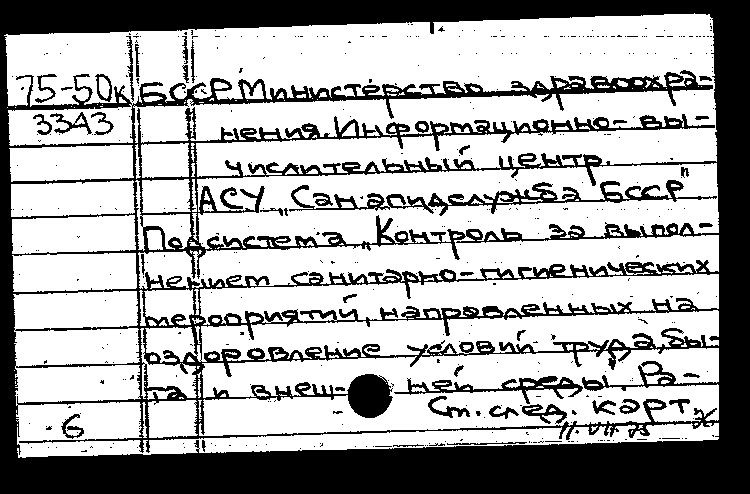 75-50к БССР Министерство здравоохра-
3343 нения. Информационно-вы-
числительный центр.
АСУ „Санэпидслужба БССР"
Подсистема „Контроль за выпол-
нением санитарно-гигиенических
мероприятий, направленных на
оздоровление условий труда, бы-
та и внеш- ней среды". Ра-
6 См. след. карт.
11.VII.75